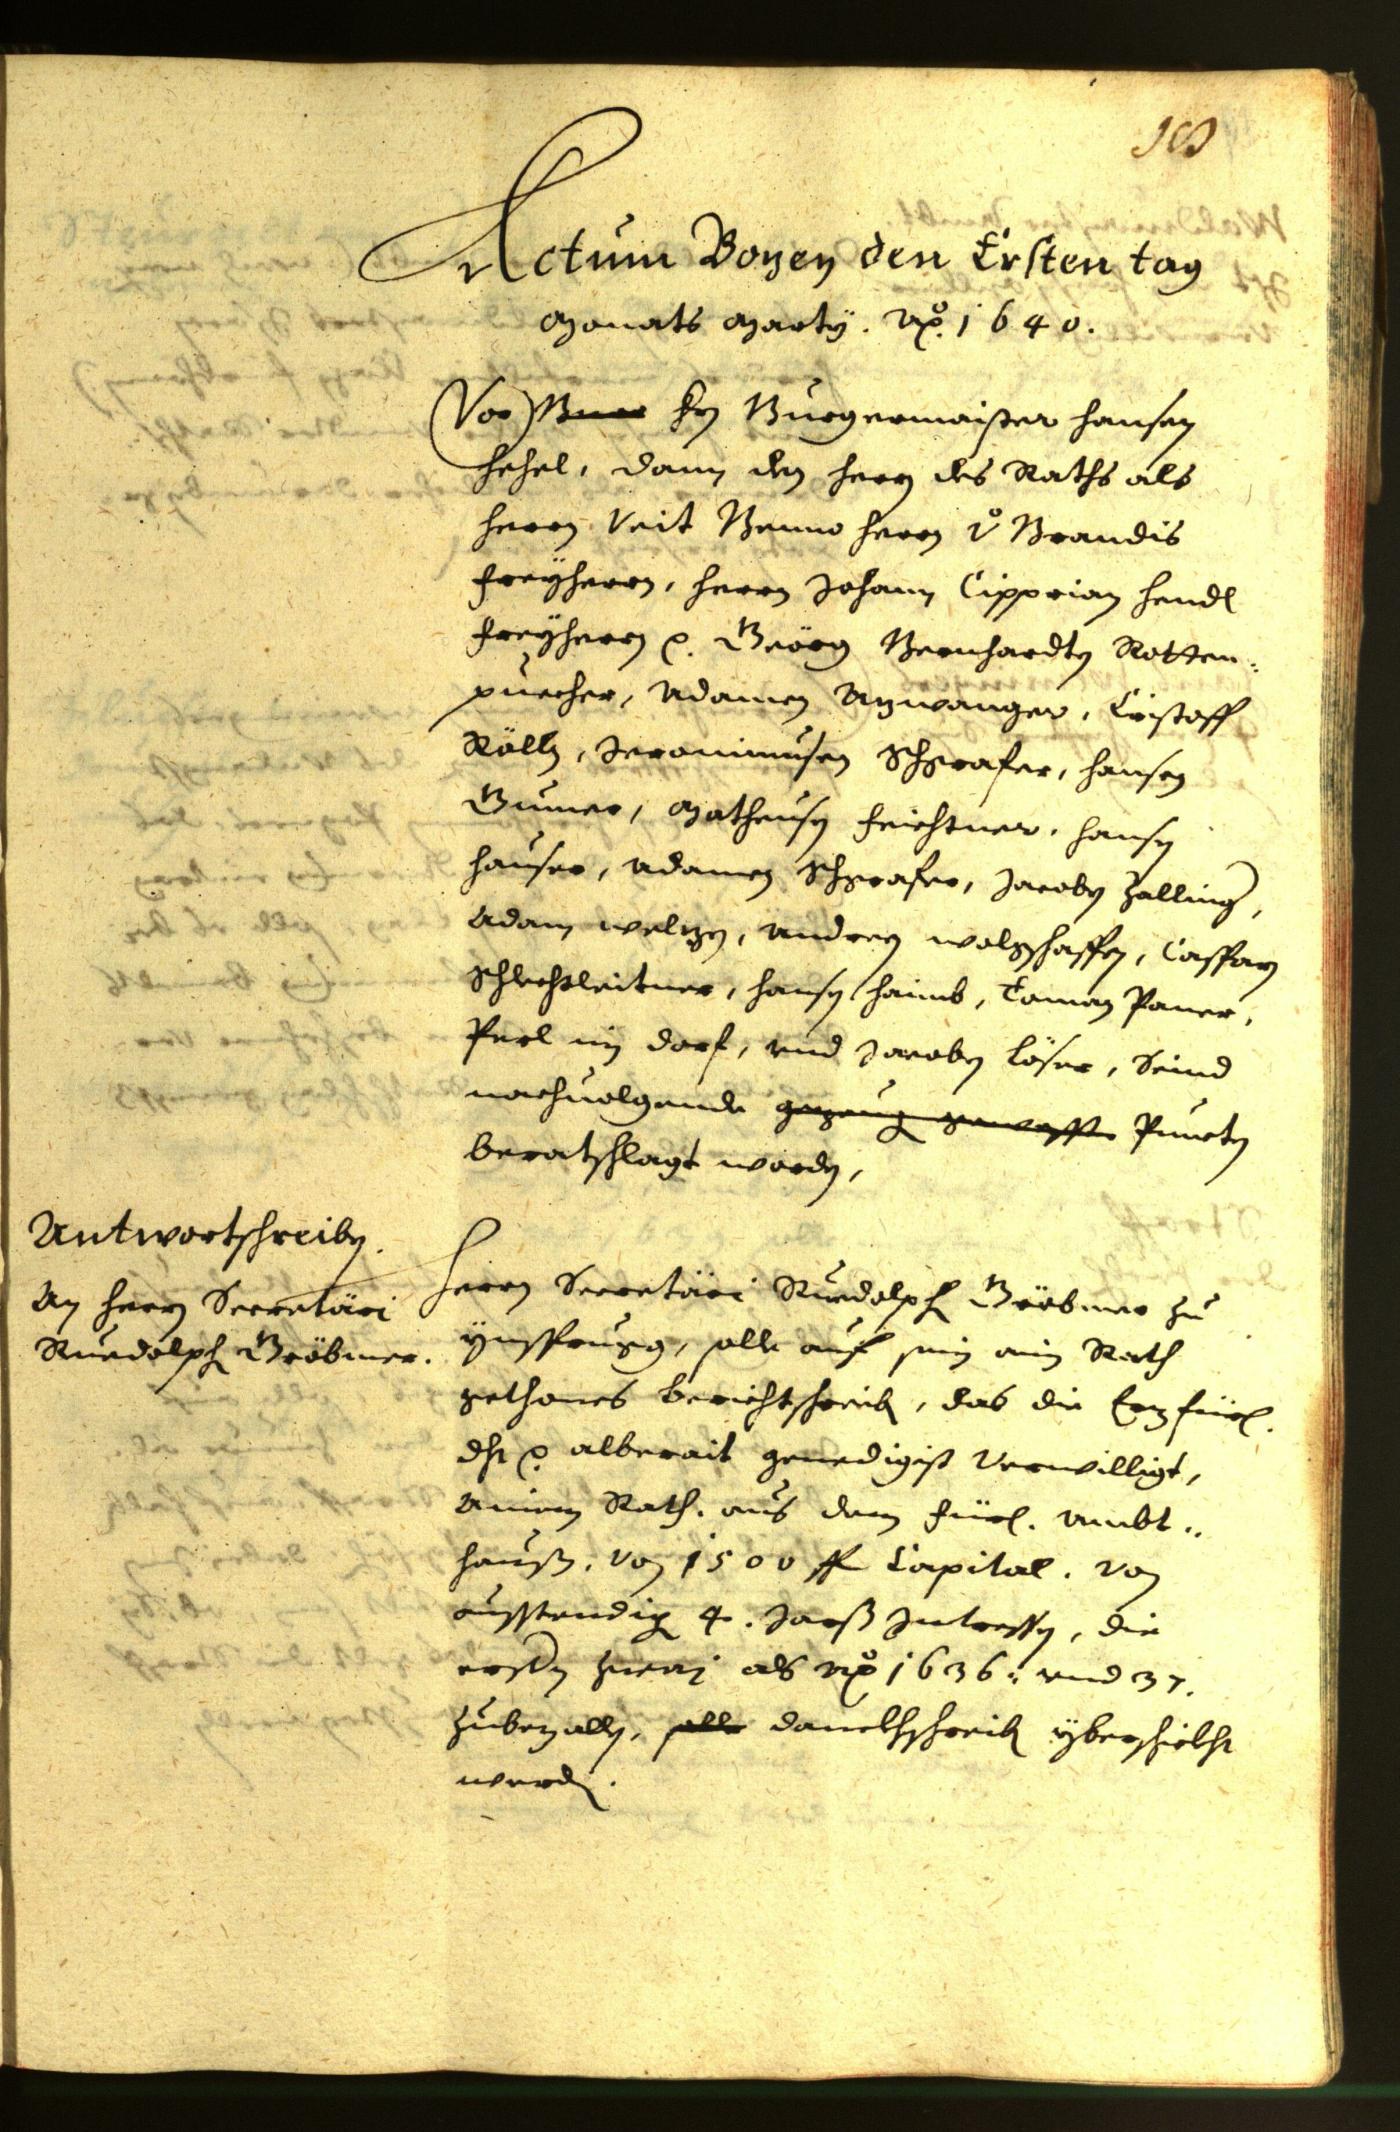 Actum Bozen den Ersten tag
Monats Marty. Aõ. 1640.
(Vor) Hn Burgermaister Hansen
Hehel, dann den Herrn des Raths als
Herrn Veit Benno Herrn v Brandis
Freyherrn, Herrn Johann Cipprian Hendl
Freyherrn Georg Bernhardtn Rotten:
puecher, Adamen Anwanger, Cristoff
Rölln, Jeronimusen Schgrafer, Hansen
Gumer, Matheusn Feichtner, Hansn
Hauser, Adamen Schgrafer, Jacobn Zalling,
Adam Weltzn, Andreen Wolgschaffn, Casparn
Schlechtleitner, Hansn Haimb, Toman Paner,
Perl im Dorf, vnd Jacobn Löser, Seind
nachuolgende Puncten
beratschlagt wordn,
Antwortschreibn.
An Herrn Secretäri
Ruedolph Gröbmer.
Herrn Secretäri Ruedolph Gröbmer zu
Ynssprugg, solle auf sein ain Rath
gethones berichtschreibn, das die Erzfürl.
dht alberait genedigist verwilligt,
Ainem Rath. aus dem fürl. Ambt„
hauß. von 1500 fl Capital. von
ausstendign 4. Jarß Intressn, die
erstn zwai als Aõ 1636: vnd 37.
zubezalln, solle danckhschreibn yberschickht
werdn.